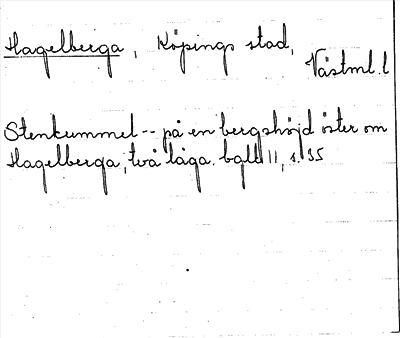 Hagelberga, Köpings stad,
Västml. l
Stenkummel -- på en bergshöjd öster om
Hagelberga, två låga. bgll 11, s. 35